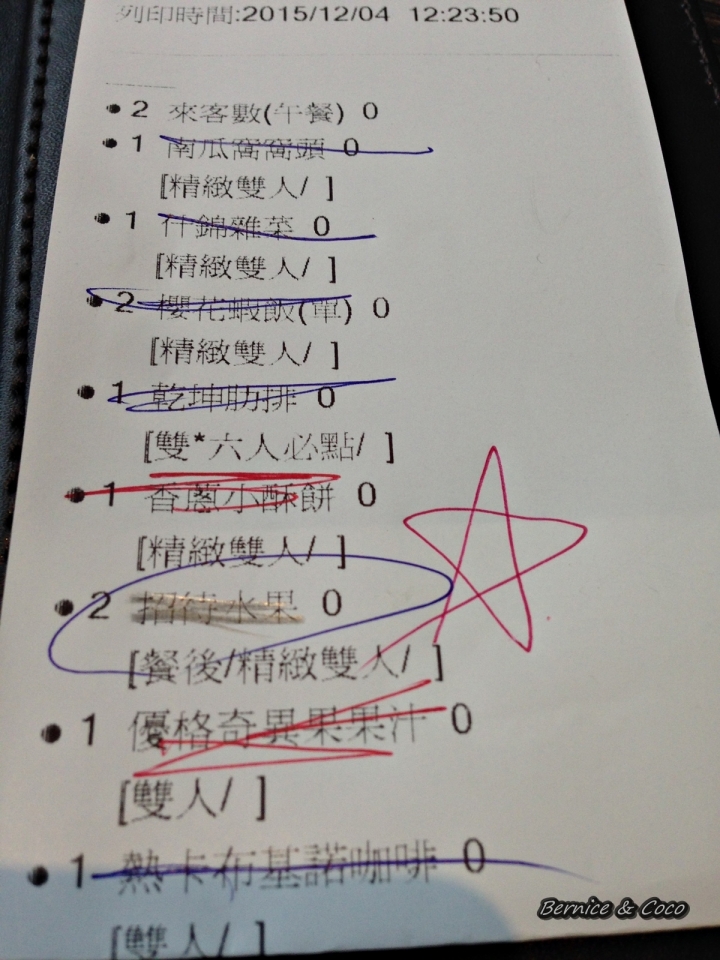 列印時間:2015/12/04 12:23:50
•2 來客數(午餐) 0
•1 南瓜窩窩頭 0
[精緻雙人/ ]
•1 什錦雜菜 0
[精緻雙人/ ]
•2 櫻花蝦飯(單) 0
[精緻雙人/ ]
•1 乾坤肋排 0
[雙*六人必點/ ]
•1 香蔥小酥餅 0
[精緻雙人/ ]
•2 招待水果 0
[餐後/精緻雙人/ ]
•1 優格奇異果果汁 0
[雙人/ ]
•1 熱卡布基諾咖啡 0
[雙人/ ]
Bernice & Coco